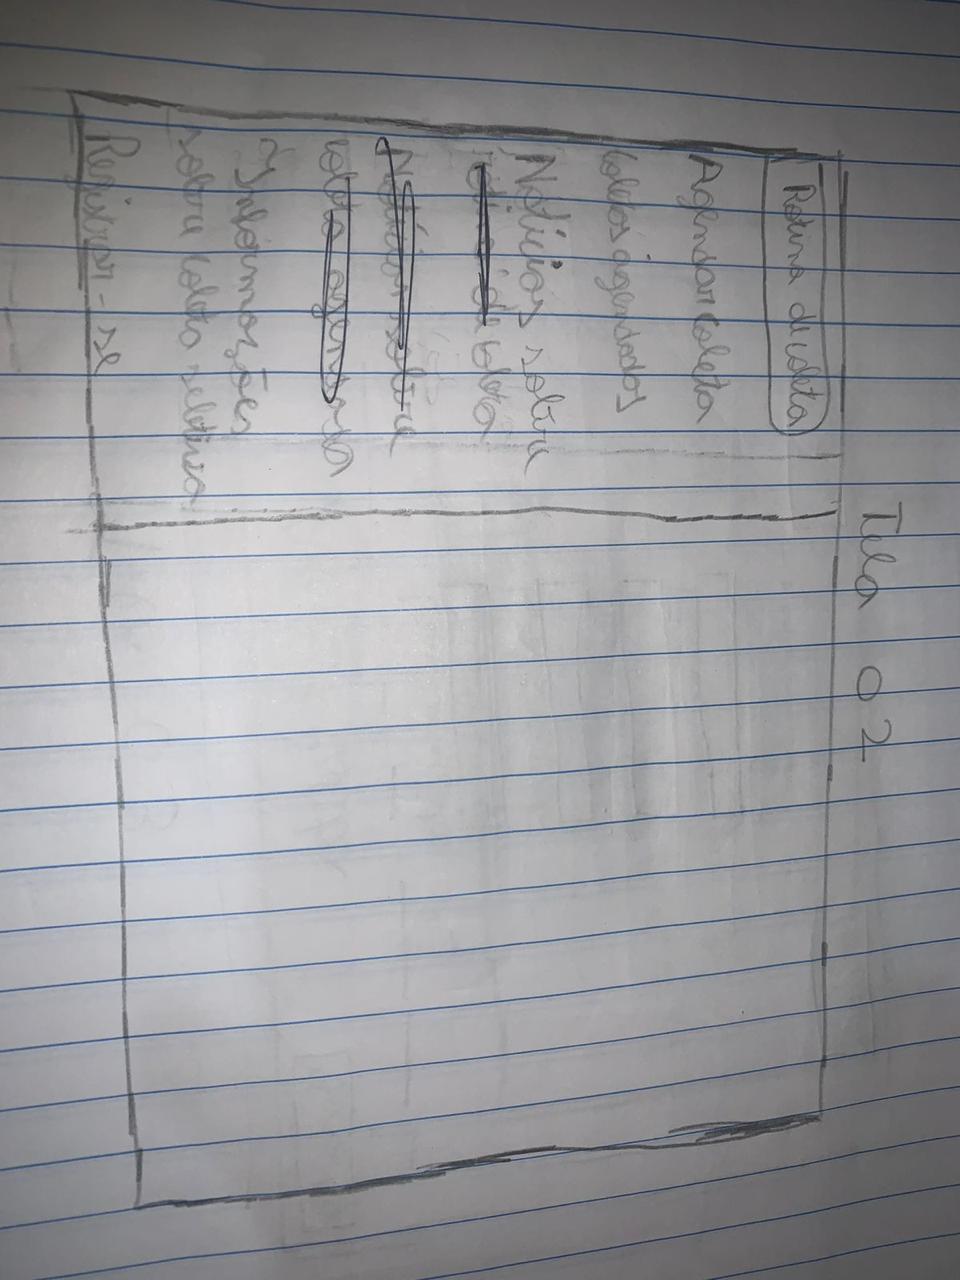 Tela 02
Rotina de coleta
Agendar coleta
Coletas agendados
Notícias sobre
coleta
Notícias sobre
coleta
Informações
sobre coleta seletiva
Registrar-se